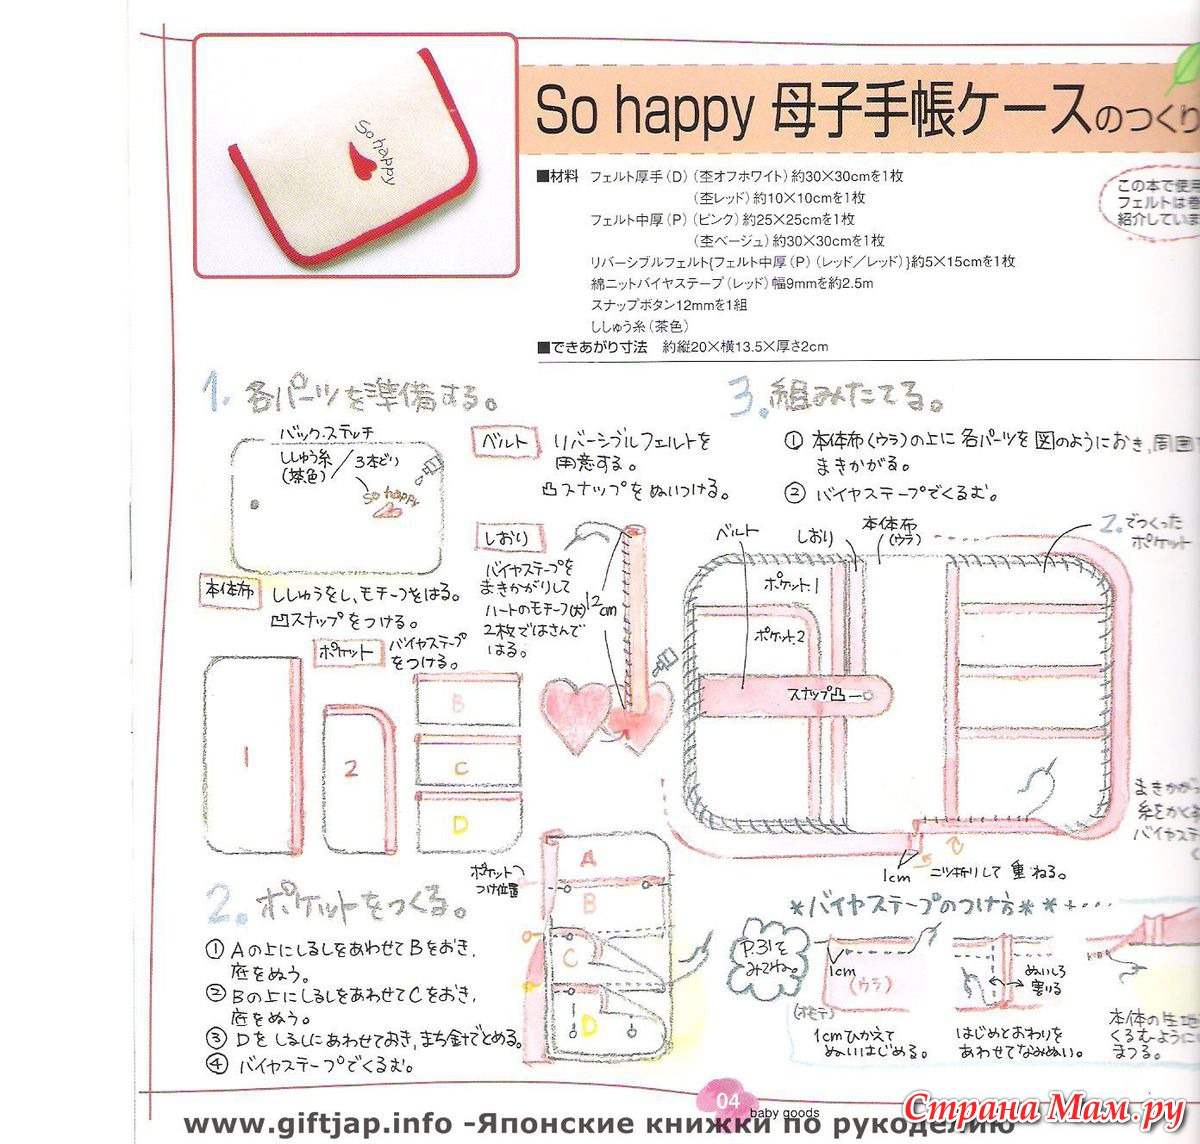 So happy
So happy 母子手帳ケースのつくり
■材料 フェルト厚手(D)(杢オフホワイト)約30×30cmを1枚
(杢レッド)約10×10cmを1枚
フェルト中厚(P)(ピンク)約25×25cmを1枚
(杢ベージュ)約30×30cmを1枚
リバーシブルフェルト{フェルト中厚(P)(レッド/レッド)}約5×15cmを1枚
綿ニットバイヤステープ(レッド)幅9mmを約2.5m
スナップボタン12mmを1組
ししゅう糸(茶色)
■できあがり寸法 約縦20×横13.5×厚さ2cm
この本で使用
フェルトは巻
紹介していま
1. 各パーツを準備する。
バック・ステッチ
ししゅう糸(茶色)/3本どり
So happy
本体布
ししゅうをし、モチーフをはる。
凹スナップをつける。
ベルト
リバーシブルフェルトを
用意する。
凸スナップをぬいつける。
しおり
バイヤステープを
まきかがりして
ハートのモチーフ(大)
2枚ではさんで
はる。
12cm
ポケット
バイヤステープ
をつける。
1
2
B
C
D
2. ポケットをつくる。
① Aの上にしるしをあわせてBをおき、
底をぬう。
② Bの上にしるしをあわせてCをおき、
底をぬう。
③ Dをしるしにあわせておき、まち針でとめる。
④ バイヤステープでくるむ。
ポケット
つけ位置
A
B
C
D
3. 組みたてる。
① 本体布(ウラ)の上に各パーツを図のようにおき、周囲
まきかがる。
② バイヤステープでくるむ。
ベルト
しおり
本体布
(ウラ)
2.でつくった
ポケット
ポケット1
ポケット2
スナップ凸
まきかが
糸をかくす
バイヤステ
1cm
二ツ折りして重ねる。
*バイヤステープのつけ方*
P.31を
みてね。
1cm
(ウラ)
(オモテ)
1cmひかえて
ぬいはじめる。
ぬいしろ
割る
はじめとおわりを
あわせてなみぬい。
本体の生地
くるむように
まつる。
04
baby goods
www.giftjap.info -Японские книжки по рукоделию
Страна Мам.ру